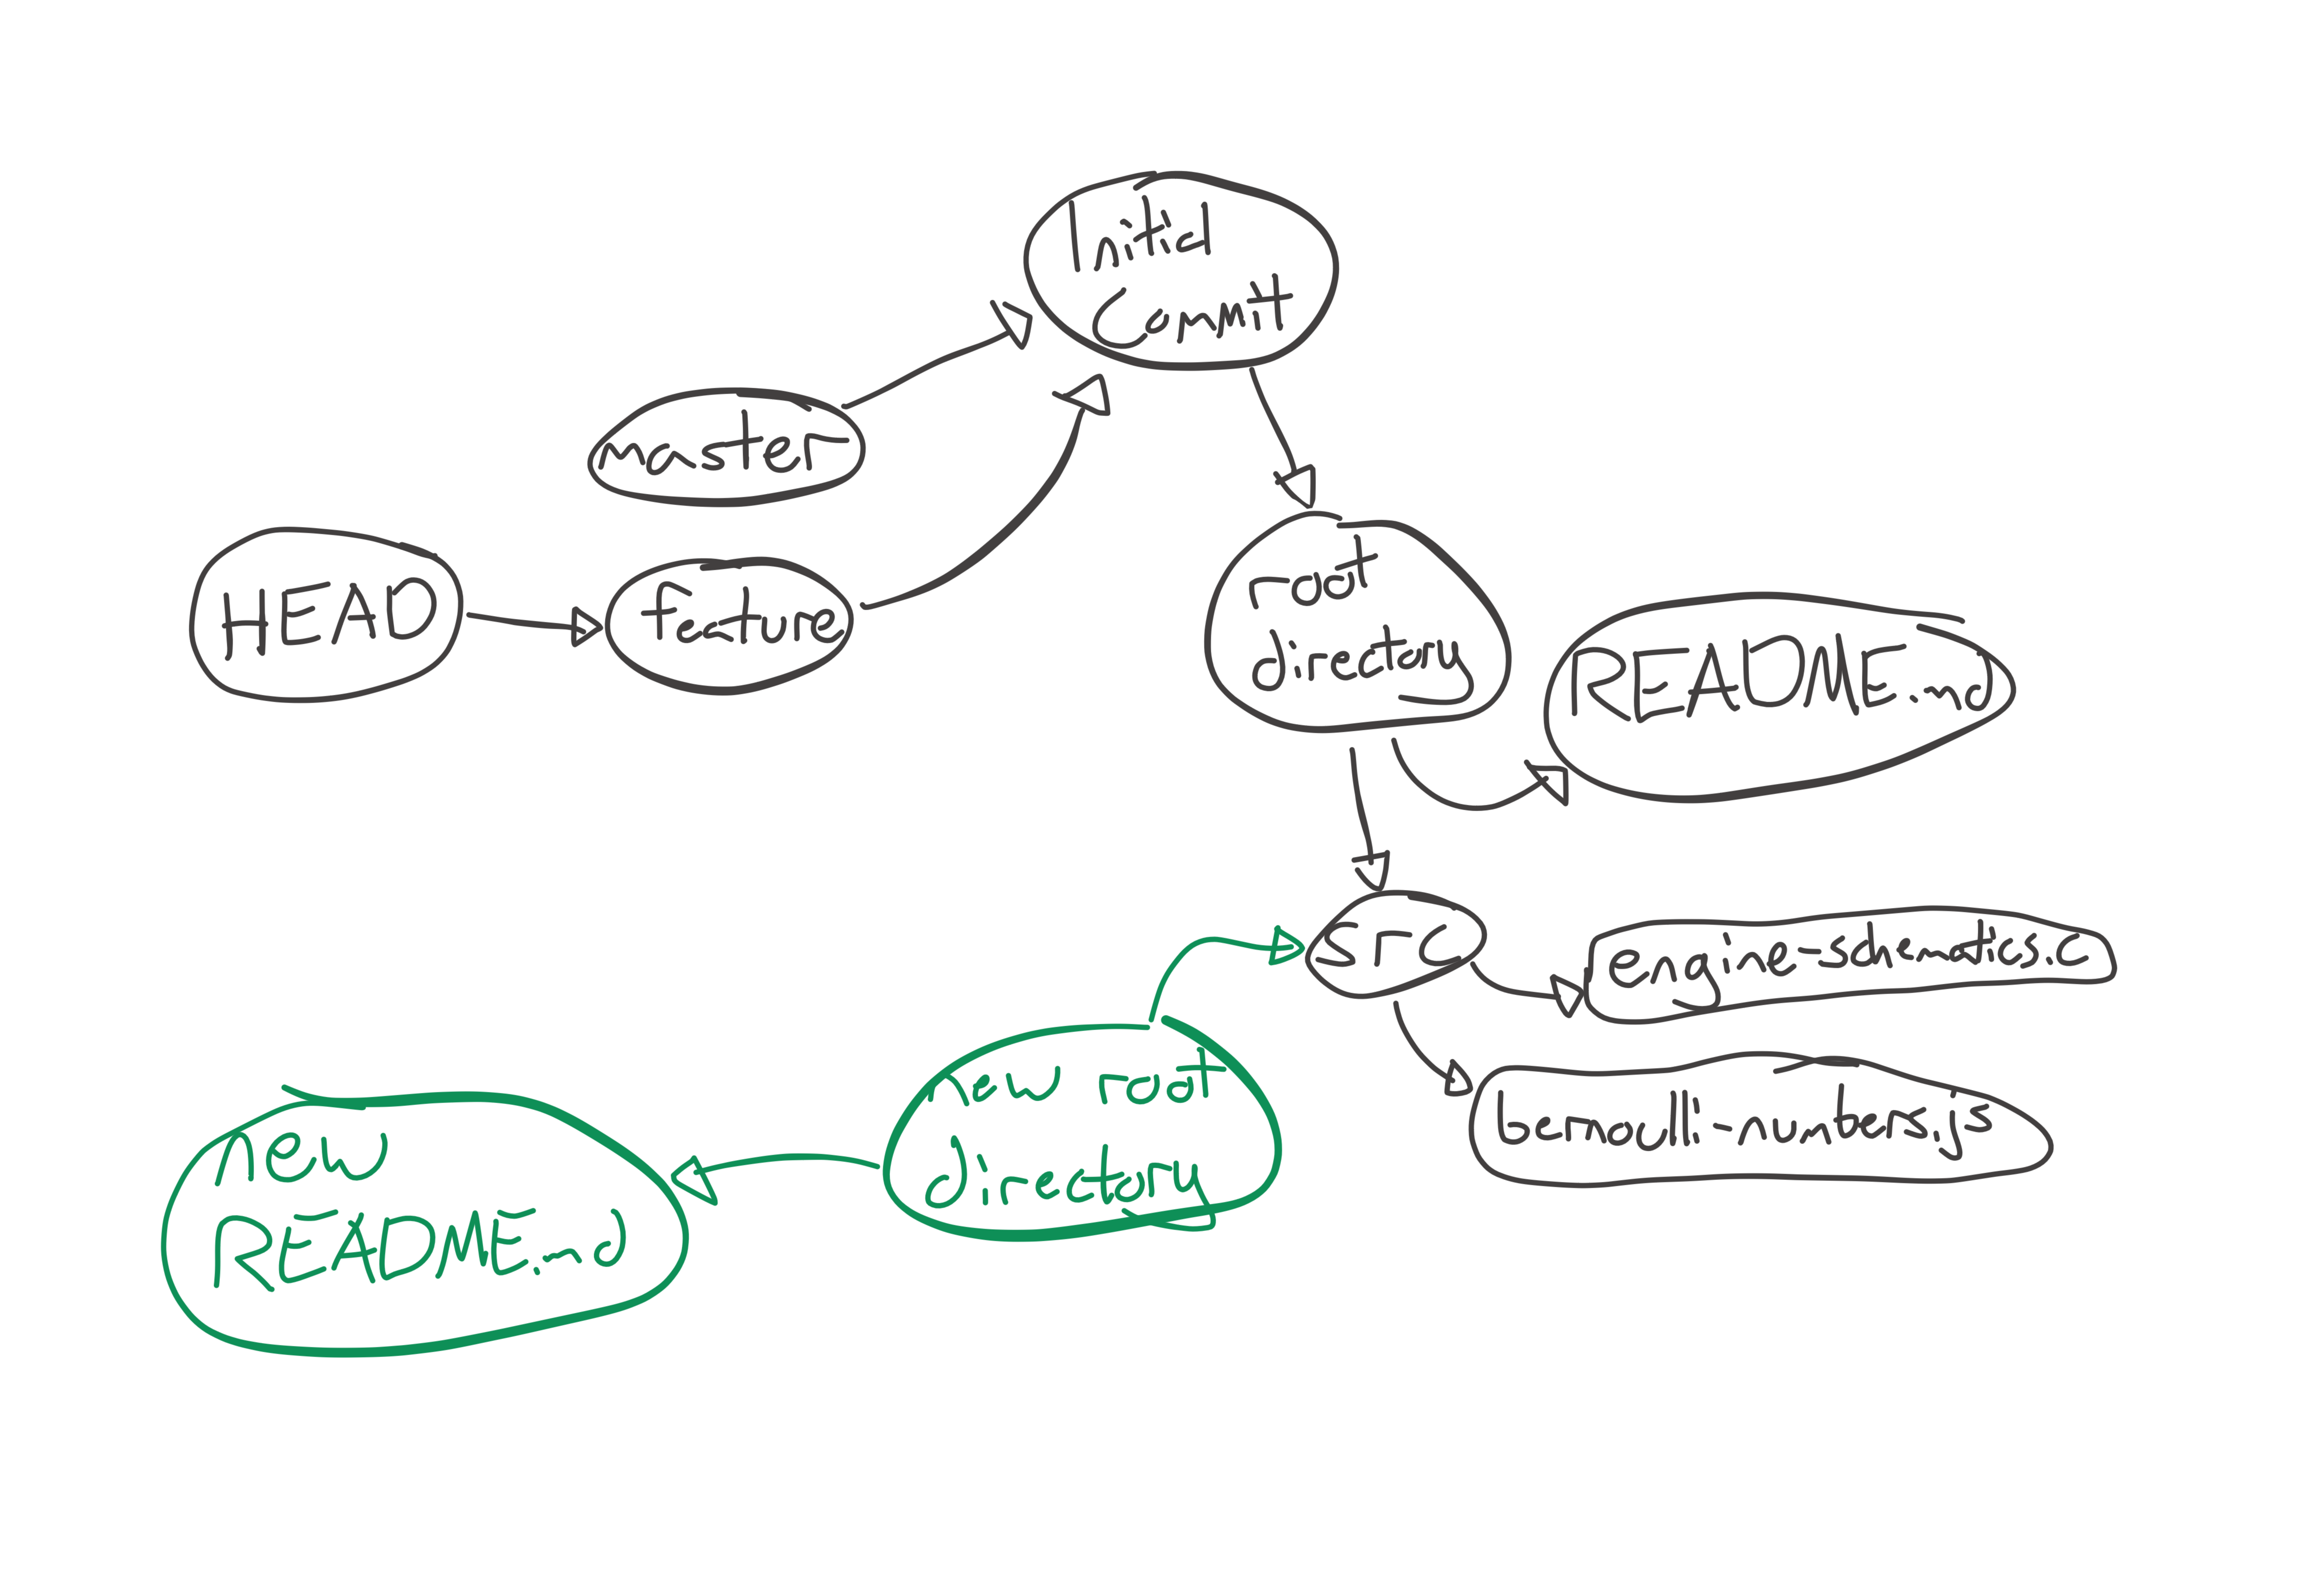 Initial
Commit
master
HEAD
feature
root
directory
README.md
src
engine-schematics.c
bernoulli-numbers.js
new root
directory
new
README.md